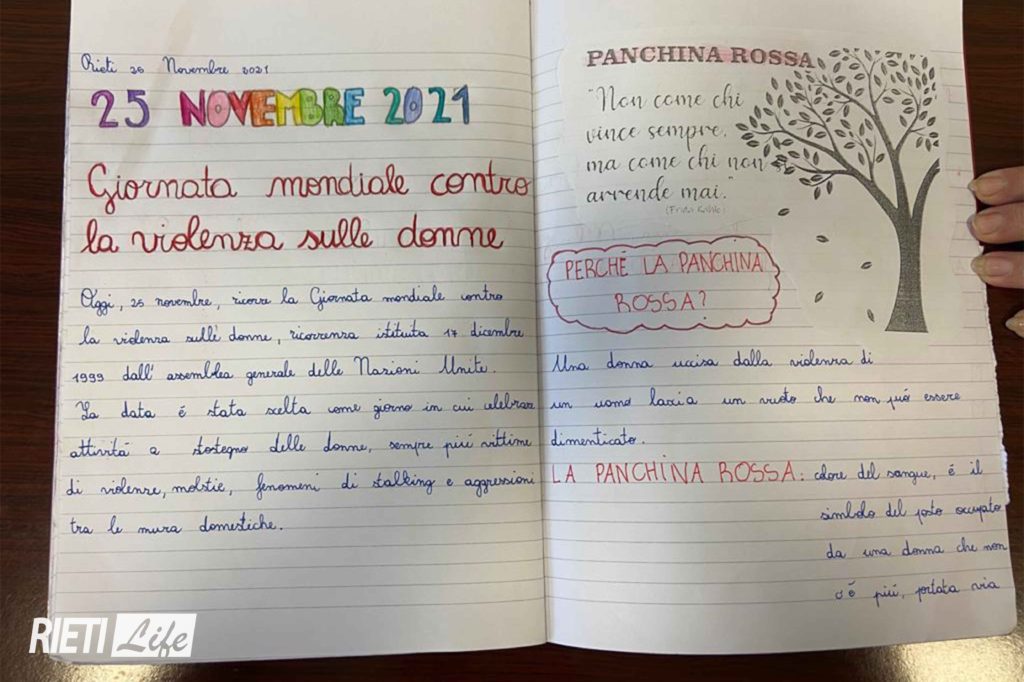 Rieti 25 Novembre 2021
25 NOVEMBRE 2021
Giornata mondiale contro
la violenza sulle donne
Oggi, 25 novembre, ricorre la Giornata mondiale contro
la violenza sulle donne, ricorrenza istituita 17 dicembre
1999 dall'assemblea generale delle Nazioni Unite.
La data é stata scelta come giorno in cui celebrare
attivitá a sostegno delle donne, sempre piú vittime
di violenze, molstie, fenomeni di stalking e aggressioni
tra le mura domestiche.
PANCHINA ROSSA
"Non come chi
vince sempre,
ma come chi non si
arrende mai."
(Frida Kahlo)
PERCHÉ LA PANCHINA
ROSSA?
Una donna uccisa dalla violenza di
un uomo lascia un vuoto che non puó essere
dimenticato.
LA PANCHINA ROSSA: colore del sangue, é il
simbolo del posto occupato
da una donna che non
c'é piú, portata via
RIETI Life